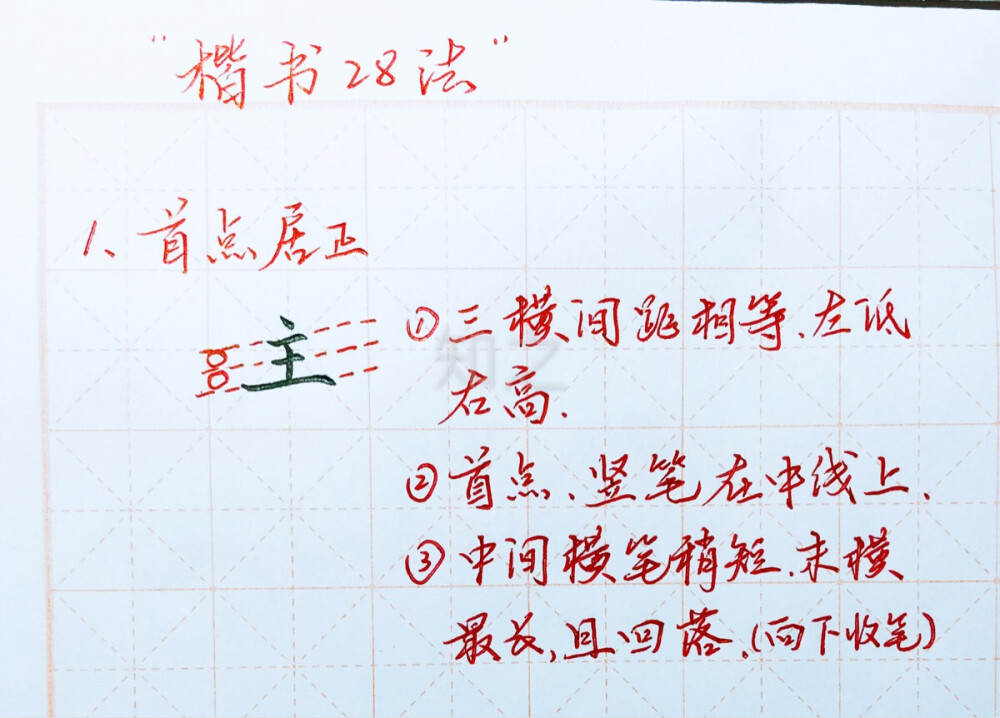 "楷书28法"
1、首点居正
主
①三横间距相等、左低
右高.
②首点、竖笔在中线上、
③中间横笔稍短、末横
最长,且回落、(向下收笔)
知之